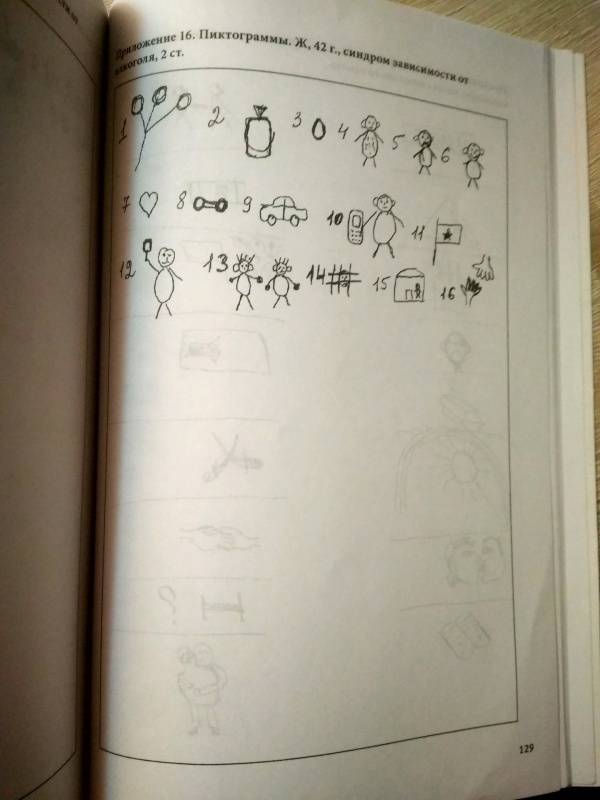 Приложение 16. Пиктограммы. Ж, 42 г., синдром зависимости от
алкоголя, 2 ст.
1 2 3 4 5 6
7 8 9 10 11
12 13 14 15 16
129